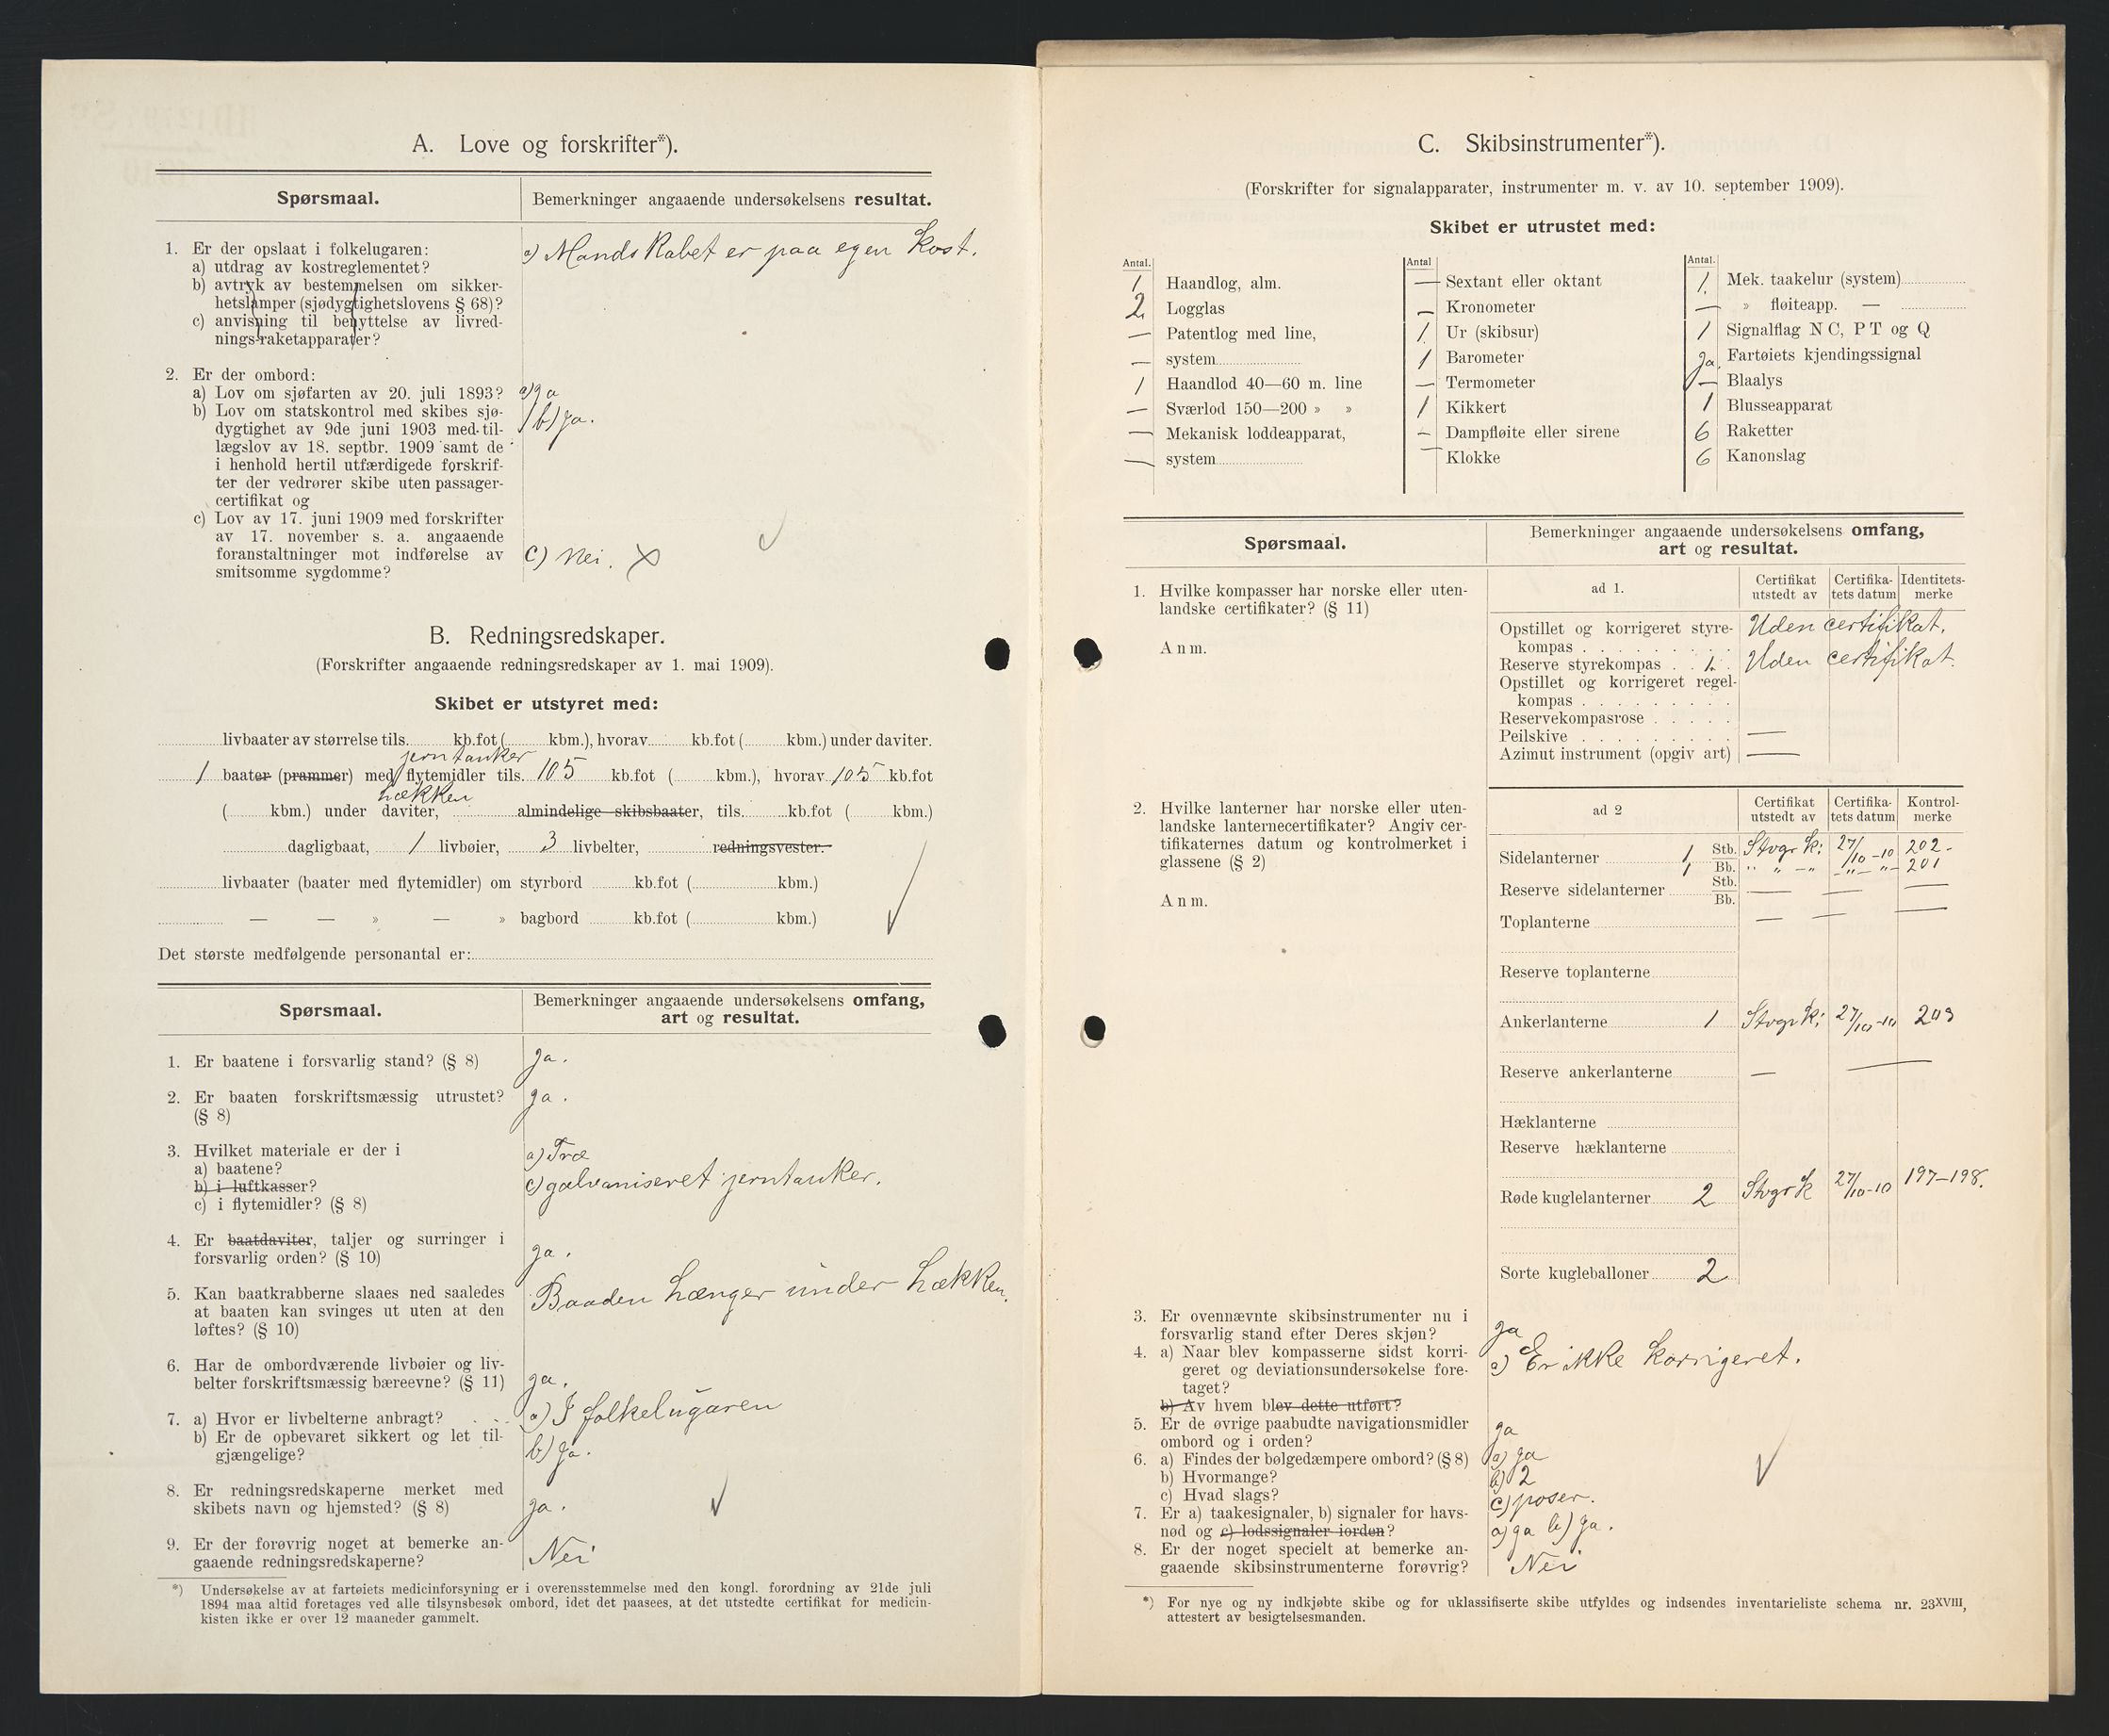 A. Love og forskrifter*).
Spørsmaal.
Bemerkninger angaaende undersøkelsens resultat.
1. Er der opslaat i folkelugaren:
a) utdrag av kostreglementet?
b) avtryk av bestemmelsen om sikker-
hetslamper (sjødygtighetslovens § 68)?
c) anvisning til benyttelse av livred-
nings-raketapparater?
a) Mandskabet er paa egen Kost.
2. Er der ombord:
a) Lov om sjøfarten av 20. juli 1893?
a) Ja
b) Lov om statskontrol med skibes sjø-
dygtighet av 9de juni 1903 med til-
lægslov av 18. septbr. 1909 samt de
i henhold hertil utfærdigede forskrif-
ter der vedrører skibe uten passager-
certifikat og
b) Ja.
c) Lov av 17. juni 1909 med forskrifter
av 17. november s. a. angaaende
foranstaltninger mot indførelse av
smitsomme sygdomme?
c) Nei. X
B. Redningsredskaper.
(Forskrifter angaaende redningsredskaper av 1. mai 1909).
Skibet er utstyret med:
livbaater av størrelse tils. kb.fot ( kbm.), hvorav kb.fot ( kbm.) under daviter.
jerntanker
1 baater (prammer) med flytemidler tils. 105 kb.fot ( kbm.), hvorav 105 kb.fot
hækken
( kbm.) under daviter, almindelige skibsbaater, tils. kb.fot ( kbm.)
dagligbaat, 1 livbøier, 3 livbelter, redningsvester.
livbaater (baater med flytemidler) om styrbord kb.fot ( kbm.)
— — » — » bagbord kb.fot ( kbm.)
Det største medfølgende personantal er:
Spørsmaal.
Bemerkninger angaaende undersøkelsens omfang,
art og resultat.
1. Er baatene i forsvarlig stand? (§ 8)
Ja.
2. Er baaten forskriftsmæssig utrustet?
(§ 8)
Ja.
3. Hvilket materiale er der i
a) baatene?
b) i luftkasser?
c) i flytemidler? (§ 8)
a) Træ
c) galvaniseret jerntanker.
4. Er baatdaviter, taljer og surringer i
forsvarlig orden? (§ 10)
Ja.
5. Kan baatkrabberne slaaes ned saaledes
at baaten kan svinges ut uten at den
løftes? (§ 10)
Baaden hænger under hækken.
6. Har de ombordværende livbøier og liv-
belter forskriftsmæssig bæreevne? (§ 11)
Ja.
7. a) Hvor er livbelterne anbragt?
b) Er de opbevaret sikkert og let til-
gjængelige?
a) I folkelugaren
b) Ja.
8. Er redningsredskaperne merket med
skibets navn og hjemsted? (§ 8)
Ja.
9. Er der forøvrig noget at bemerke an-
gaaende redningsredskaperne?
Nei
*) Undersøkelse av at fartøiets medicinforsyning er i overensstemmelse med den kongl. forordning av 21de juli
1894 maa altid foretages ved alle tilsynsbesøk ombord, idet det paasees, at det utstedte certifikat for medicin-
kisten ikke er over 12 maaneder gammelt.
C. Skibsinstrumenter*).
(Forskrifter for signalapparater, instrumenter m. v. av 10. september 1909).
Skibet er utrustet med:
Antal.
1 Haandlog, alm.
2 Logglas
— Patentlog med line,
— system
1 Haandlod 40—60 m. line
— Sværlod 150—200 » »
— Mekanisk loddeapparat,
— system
Antal
— Sextant eller oktant
— Kronometer
1 Ur (skibsur)
1 Barometer
— Termometer
1 Kikkert
— Dampfløite eller sirene
— Klokke
Antal.
1 Mek. taakelur (system)
— » fløiteapp. —
1 Signalflag N C, P T og Q
Ja Fartøiets kjendingssignal
— Blaalys
1 Blusseapparat
6 Raketter
6 Kanonslag
Spørsmaal.
Bemerkninger angaaende undersøkelsens omfang,
art og resultat.
1. Hvilke kompasser har norske eller uten-
landske certifikater? (§ 11)
Anm.
ad 1. Certifikat utstedt av Certifika-tets datum Identitets-merke
Opstillet og korrigeret styre-
kompas Uden certifikat.
Reserve styrekompas 1. Uden certifikat.
Opstillet og korrigeret regel-
kompas
Reservekompasrose
Peilskive —
Azimut instrument (opgiv art) —
2. Hvilke lanterner har norske eller uten-
landske lanternecertifikater? Angiv cer-
tifikaternes datum og kontrolmerket i
glassene (§ 2)
Anm.
ad 2 Certifikat utstedt av Certifika-tets datum Kontrol-merke
Sidelanterner 1 Stb. Stvgr K: 27/10-10 202-
1 Bb. " " -" -"- "- 201
Reserve sidelanterner Stb. — — —
Bb.
Toplanterne — — —
Reserve toplanterne
Ankerlanterne 1 Stvgr K: 27/10-10 203
Reserve ankerlanterne — —
Hæklanterne
Reserve hæklanterne
Røde kuglelanterner 2 Stvgr K 27/10-10 197-198.
Sorte kugleballoner 2
3. Er ovennævnte skibsinstrumenter nu i
forsvarlig stand efter Deres skjøn?
Ja
4. a) Naar blev kompasserne sidst korri-
geret og deviationsundersøkelse fore-
taget?
b) Av hvem blev dette utført?
a) Er ikke korrigeret.
5. Er de øvrige paabudte navigationsmidler
ombord og i orden?
Ja
6. a) Findes der bølgedæmpere ombord? (§ 8)
b) Hvormange?
c) Hvad slags?
a) Ja
b) 2
c) poser.
7. Er a) taakesignaler, b) signaler for havs-
nød og c) lodssignaler iorden?
a) Ja b) Ja.
8. Er der noget specielt at bemerke an-
gaaende skibsinstrumenterne forøvrig?
Nei
*) For nye og ny indkjøbte skibe og for uklassifiserte skibe utfyldes og indsendes inventarieliste schema nr. 23XVIII,
attestert av besigtelsesmanden.